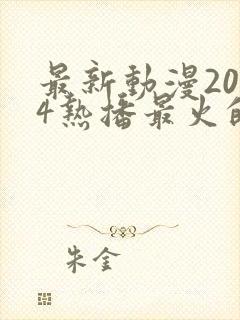 最新動漫20
4熱播最火的
朱金